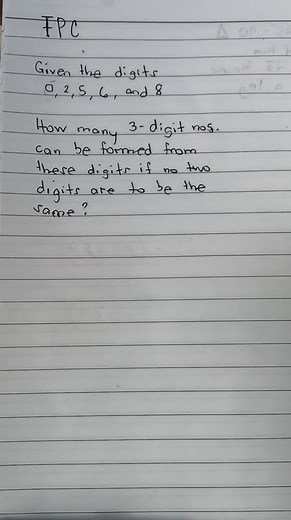 FPC
Given the digits
0, 2, 5, 6, and 8
How many 3-digit nos.
can be formed from
these digits if no two
digits are to be the
same?